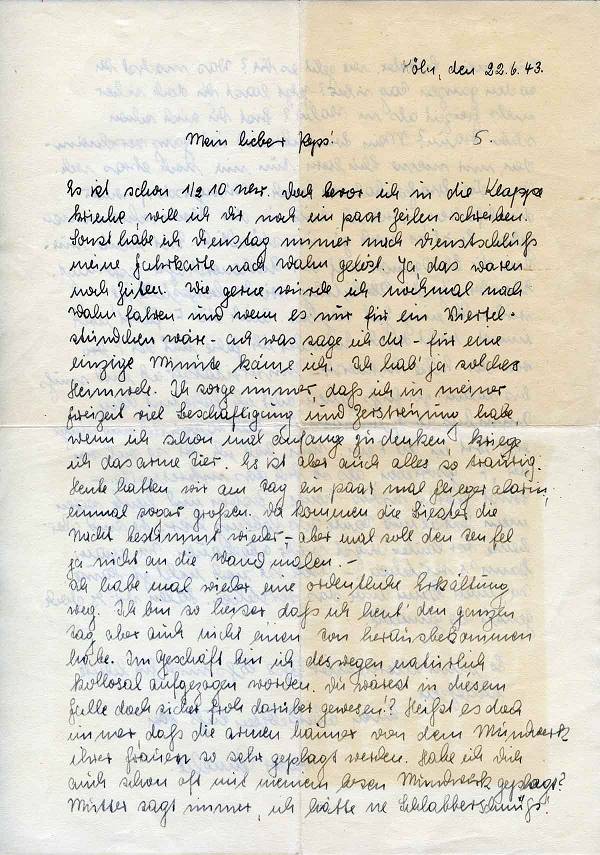 Köln, den 22.6.43.
Mein lieber 5.
Es ist schon 1/2 10 Uhr. Doch bevor ich in die Klappe
krieche, will ich Dir noch ein paar Zeilen schreiben.
Sonst habe ich Dienstag immer nach Dienstschluß
meine Fahrkarte nach Wahn gelöst. Ja, das waren
noch Zeiten. Wie gerne würde ich nochmal nach
Wahn fahren und wenn es nur für ein Viertel-
stündchen wär – ach was sage ich da – für eine
einzige Minute käme ich. Ich hab' ja solches
Heimweh. Ich sorge immer, daß ich in meiner
Freizeit viel Beschäftigung und Zerstreuung habe,
wenn ich schon mal anfange zu denken, kriege
ich das arme Tier. Es ist aber auch alles so traurig.
Heute hatten wir am Tag ein paar mal Fliegeralarm,
einmal sogar großen. Da kommen die Biester die
Nacht bestimmt wieder –, aber mal soll den Teufel
ja nicht an die Wand malen. –
Ich habe mal wieder eine ordentliche Erkältung
weg. Ich bin so heiser daß ich heut' den ganzen
Tag aber auch nicht einen Ton herausbekommen
habe. Im Geschäft bin ich deswegen natürlich
kollosal aufgezogen worden. Du wärest in diesem
Falle doch sicher froh darüber gewesen!? Heißt es doch
immer daß die armen Männer von dem Mundwerk
ihrer Frauen so sehr geplagt werden. Habe ich Dich
auch schon oft mit meinem bösen Mundwerk geplagt?
Mutter sagt immer, ich hätte ne